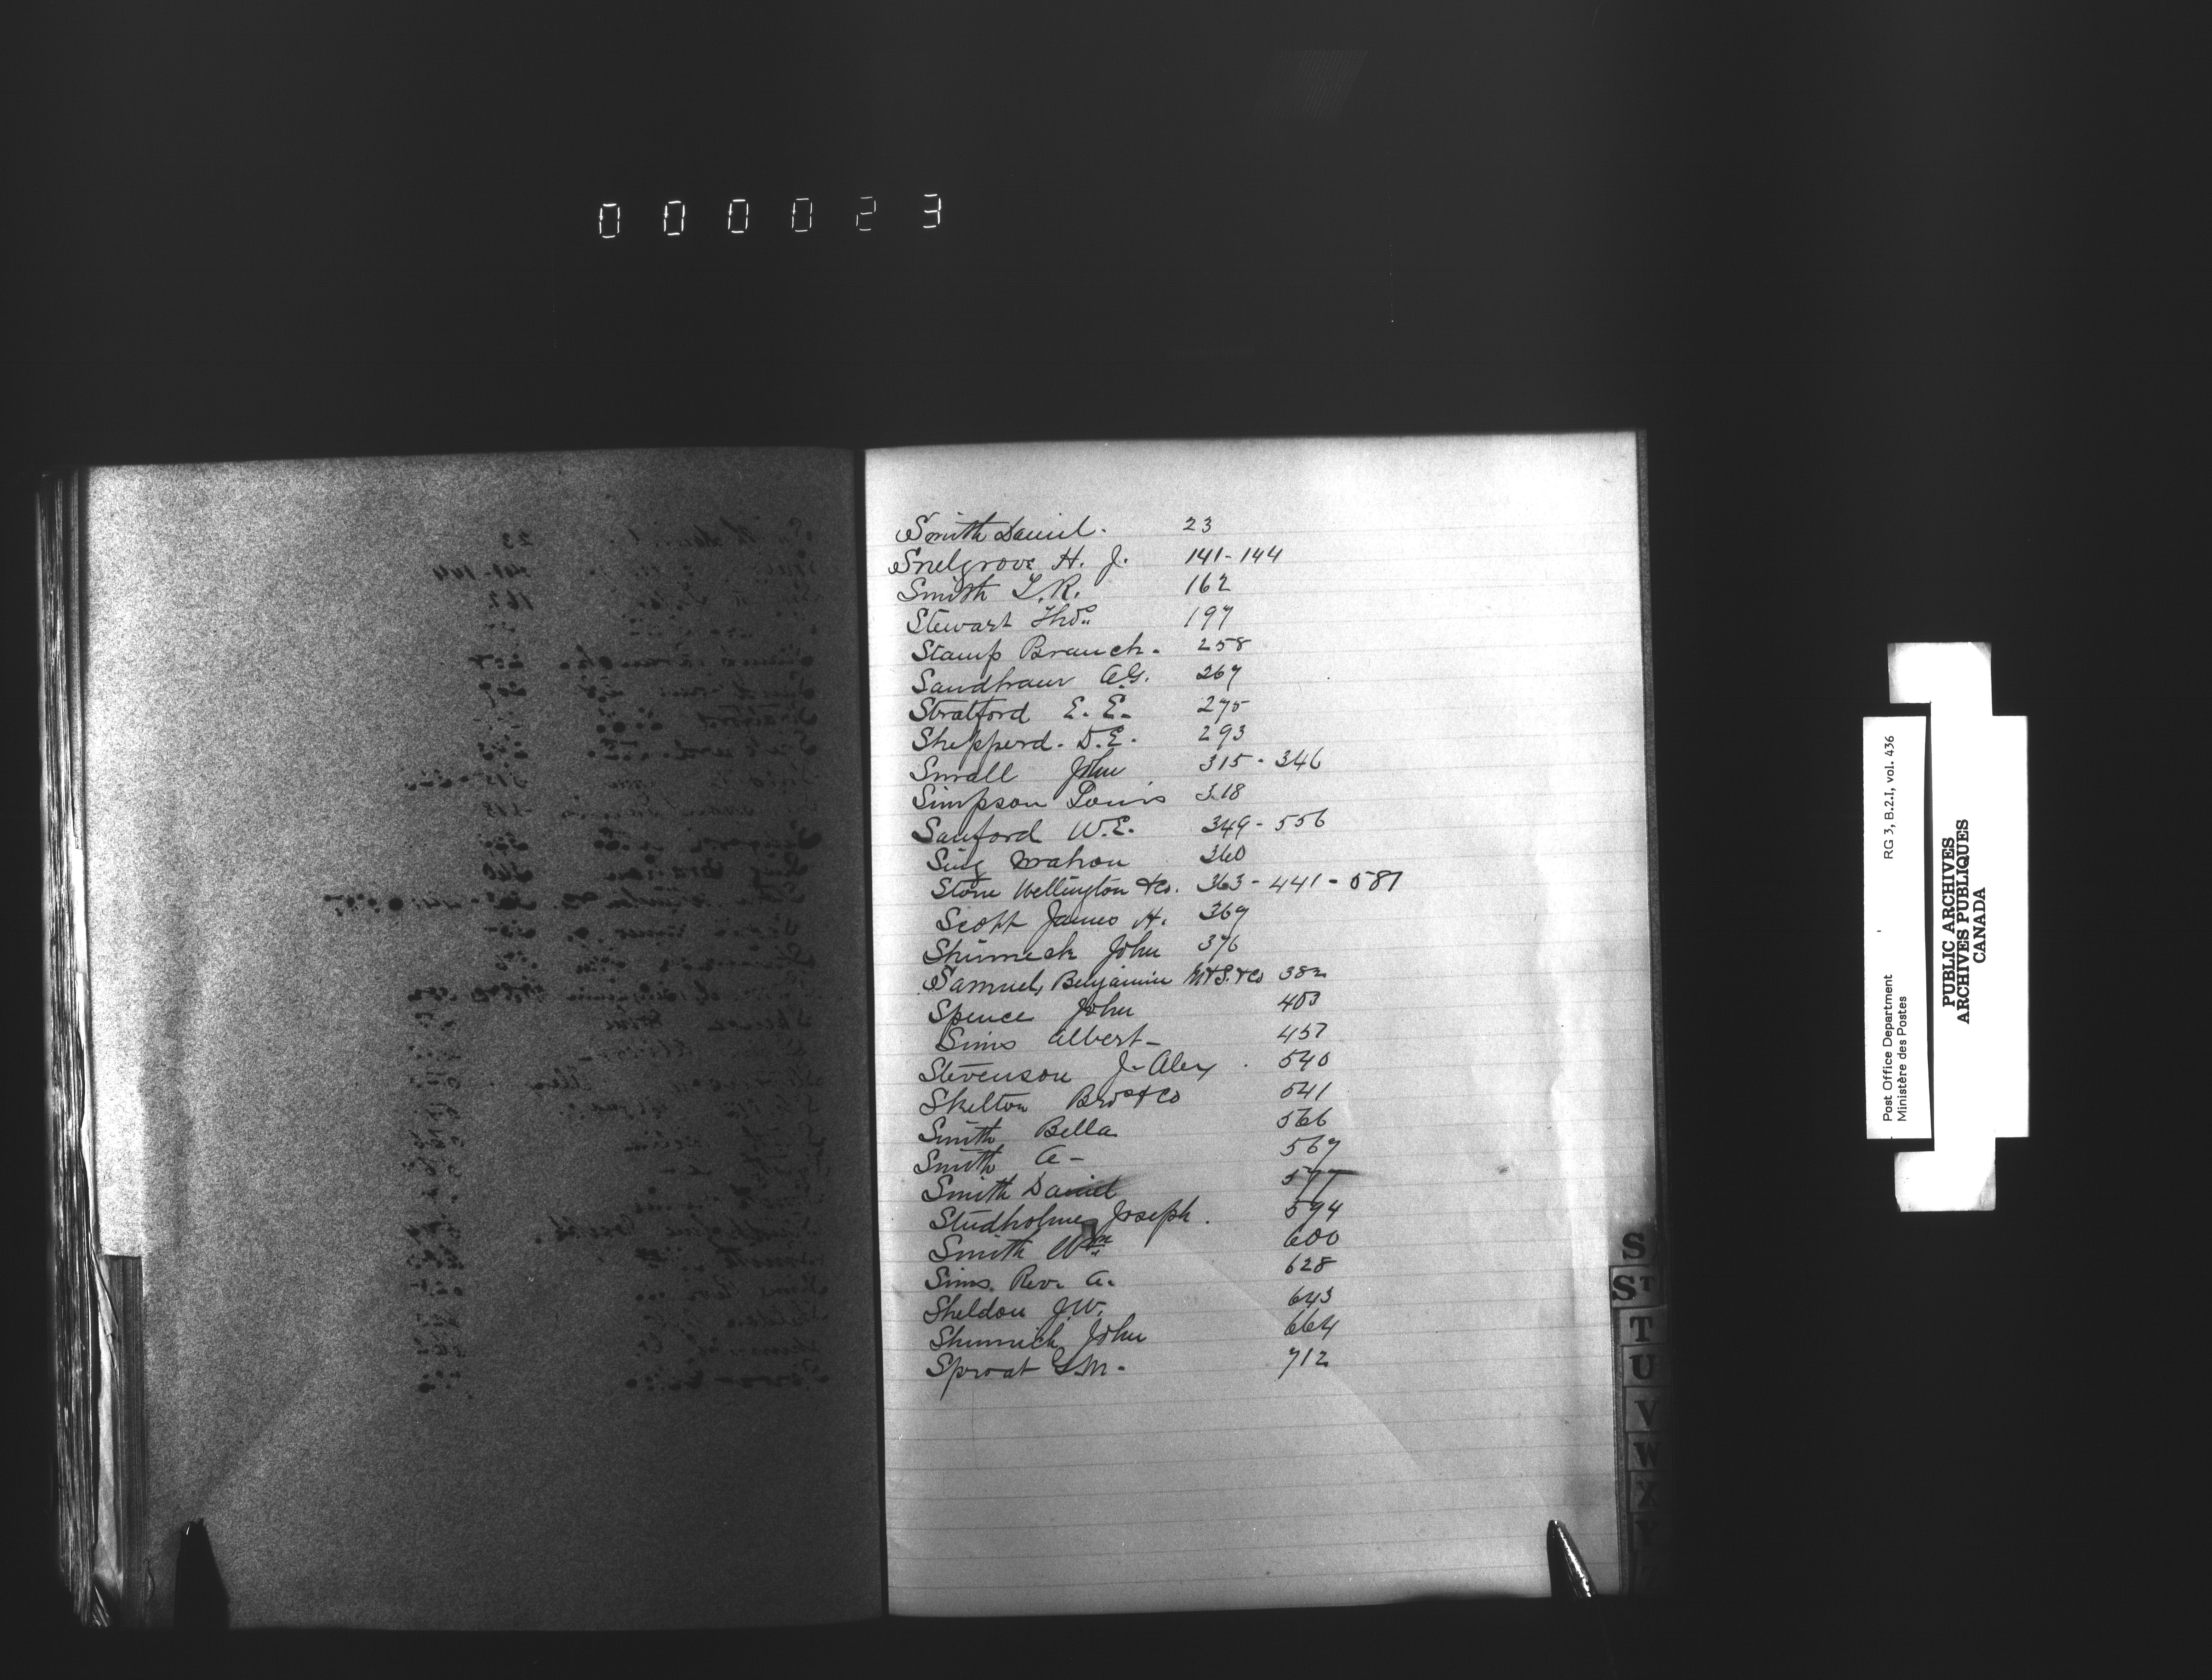 000023
Smith Daniel. 23
Snelgrove H. J. 141-144
Smith T. R. 162
Stewart Thos 197
Stamp Branch. 258
Sandham A.G. 267
Stratford E. E. 275
Shepperd. D.E. 293
Small John 315-346
Simpson Louis 318
Sanford W.E. 349-556
Sing Mahon 360
Stone Wellington & Co. 363-441-587
Scott James H. 369
Shimmick John 376
Samuel, Benjamin M & S. & Co 382
Spence John 403
Sims Albert- 457
Stevenson J- Alex 540
Skelton Bros & Co 541
Smith Bella 566
Smith A- 567
Smith Daniel 577
Studholme Joseph. 594
Smith Wm 600
Sims Rev. A. 628
Sheldon J.W. 643
Shimmick John 664
Sproat G.M. 712
S
ST
T
U
V
W
X
Y
Post Office Department RG 3, B.2.I, vol. 436
Ministère des Postes
PUBLIC ARCHIVES
ARCHIVES PUBLIQUES
CANADA